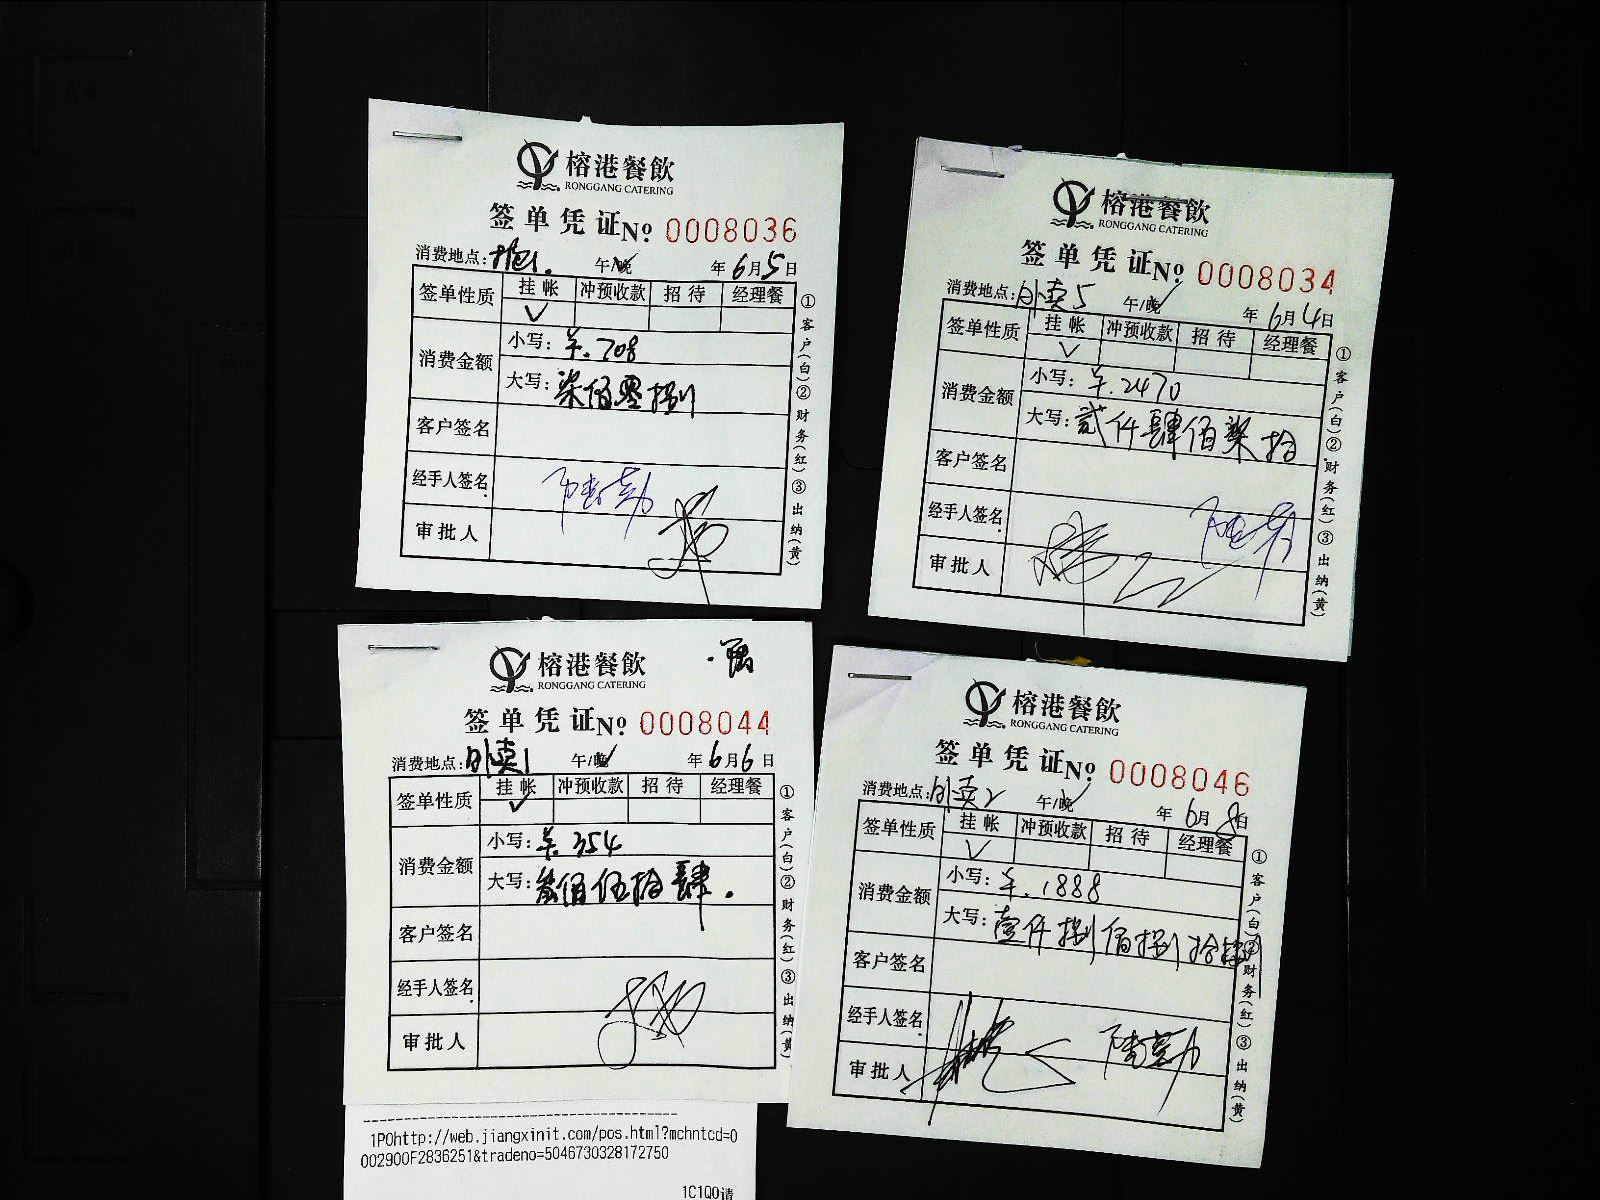 榕港餐飲
RONGGANG CATERING
签单凭证№ 0008036
消费地点: 午/晚 年6月5日
签单性质 挂帐 冲预收款 招待 经理餐
✓
消费金额 小写: ¥.708
大写: 柒佰零捌
客户签名
经手人签名
审批人
①客户(白)②财务(红)③出纳(黄)
榕港餐飲
RONGGANG CATERING
签单凭证№ 0008034
消费地点: 外卖5 午/晚 年6月4日
签单性质 挂帐 冲预收款 招待 经理餐
✓
消费金额 小写: ¥.2470
大写: 贰仟肆佰柒拾
客户签名
经手人签名
审批人
①客户(白)②财务(红)③出纳(黄)
榕港餐飲
RONGGANG CATERING
签单凭证№ 0008044
消费地点: 外卖1 午/晚 年6月6日
签单性质 挂帐 冲预收款 招待 经理餐
✓
消费金额 小写: ¥.354
大写: 叁佰伍拾肆.
客户签名
经手人签名
审批人
①客户(白)②财务(红)③出纳(黄)
榕港餐飲
RONGGANG CATERING
签单凭证№ 0008046
消费地点: 外卖2 午/晚 年6月8日
签单性质 挂帐 冲预收款 招待 经理餐
✓
消费金额 小写: ¥.1888
大写: 壹仟捌佰捌拾捌
客户签名
经手人签名
审批人
①客户(白)②财务(红)③出纳(黄)
1P0http://web.jiangxinit.com/pos.html?mchntcd=0
002900F2836251&tradeno=5046730328172750
1C1Q0请